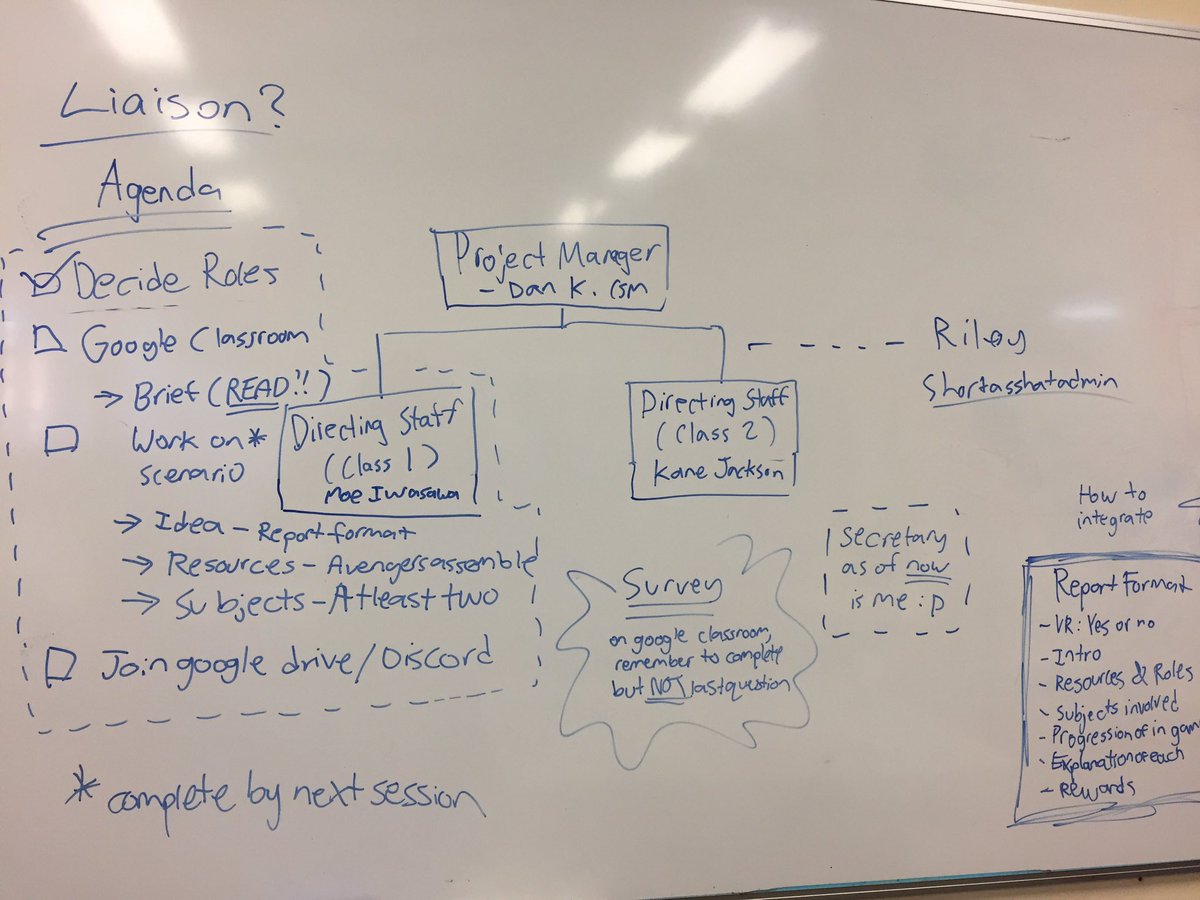 Liaison?
Agenda
Decide Roles
Google Classroom
→ Brief (READ!!)
Work on*
scenario
→ Idea - Report format
→ Resources - Avengers assemble
→ Subjects - At least two
Join google drive/Discord
* complete by next session
Project Manager
- Dan K. CSM
Directing Staff
(Class 1)
Moe Iwasawa
Directing Staff
(Class 2)
Kane Jackson
Riley
Shortasshatadmin
Survey
on google classroom,
remember to complete
but NOT last question
Secretary
as of now
is me :p
How to
integrate
Report Format
- VR: Yes or no
- Intro
- Resources & Roles
- Subjects involved
- Progression of in gam
- Explanation of each
- Rewards